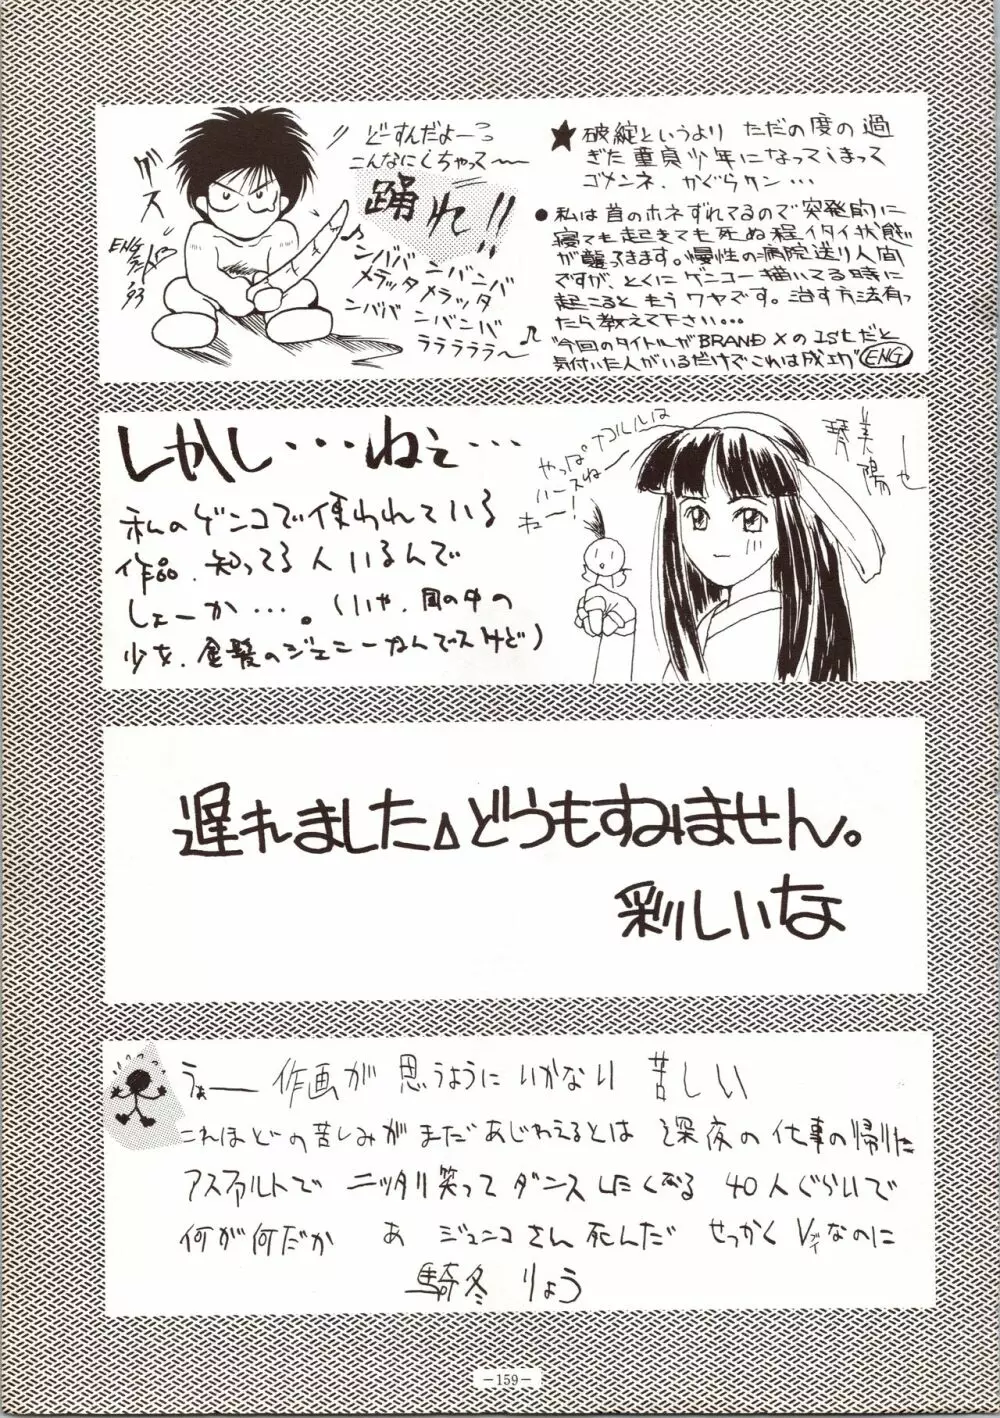 どーすんだよーっ
こんなにしちゃって〜
踊れ!!
♪
ンババ ンバンバ
メラッタメラッタ
ンババ ンバンバ
ララララララ〜♪
グス
ENG
'93
★ 破綻というより ただの度の過
ぎた童貞少年になってしまって
ゴメンネ、かぐらクン…
● 私は首のホネずれてるので突発的に
寝ても起きても死ぬ程イタイ状態
が襲ってきます。慢性の病院送り人間
ですが、とくにゲンコー描いてる時に
起こるともうワヤです。治す方法有っ
たら教えて下さい…
"今回のタイトルがBRAND Xの1stだと
気付いた人がいるだけでこれは成功" ENG
しかし・・・ねぇ・・・
私のゲンコで使われている
作品、知ってる人いるんで
しょーか…。(いや、図の中の
少女、金髪のジェニーなんでスけど)
やっぱナコルルは
ハースねー
キュー!
琴美陽也
遅れました△どうもすみません。
彩しいな
うぉー 作画が 思うようにいかない 苦しい
これほどの苦しみがまだあじわえるとは 深夜の仕事の帰りに
アスファルトで ニッタリ笑って ダンスしたくなる 40人ぐらいで
何が何だか あ ジュンコさん死んだ せっかく Vブイなのに
騎冬 りょう
―159―